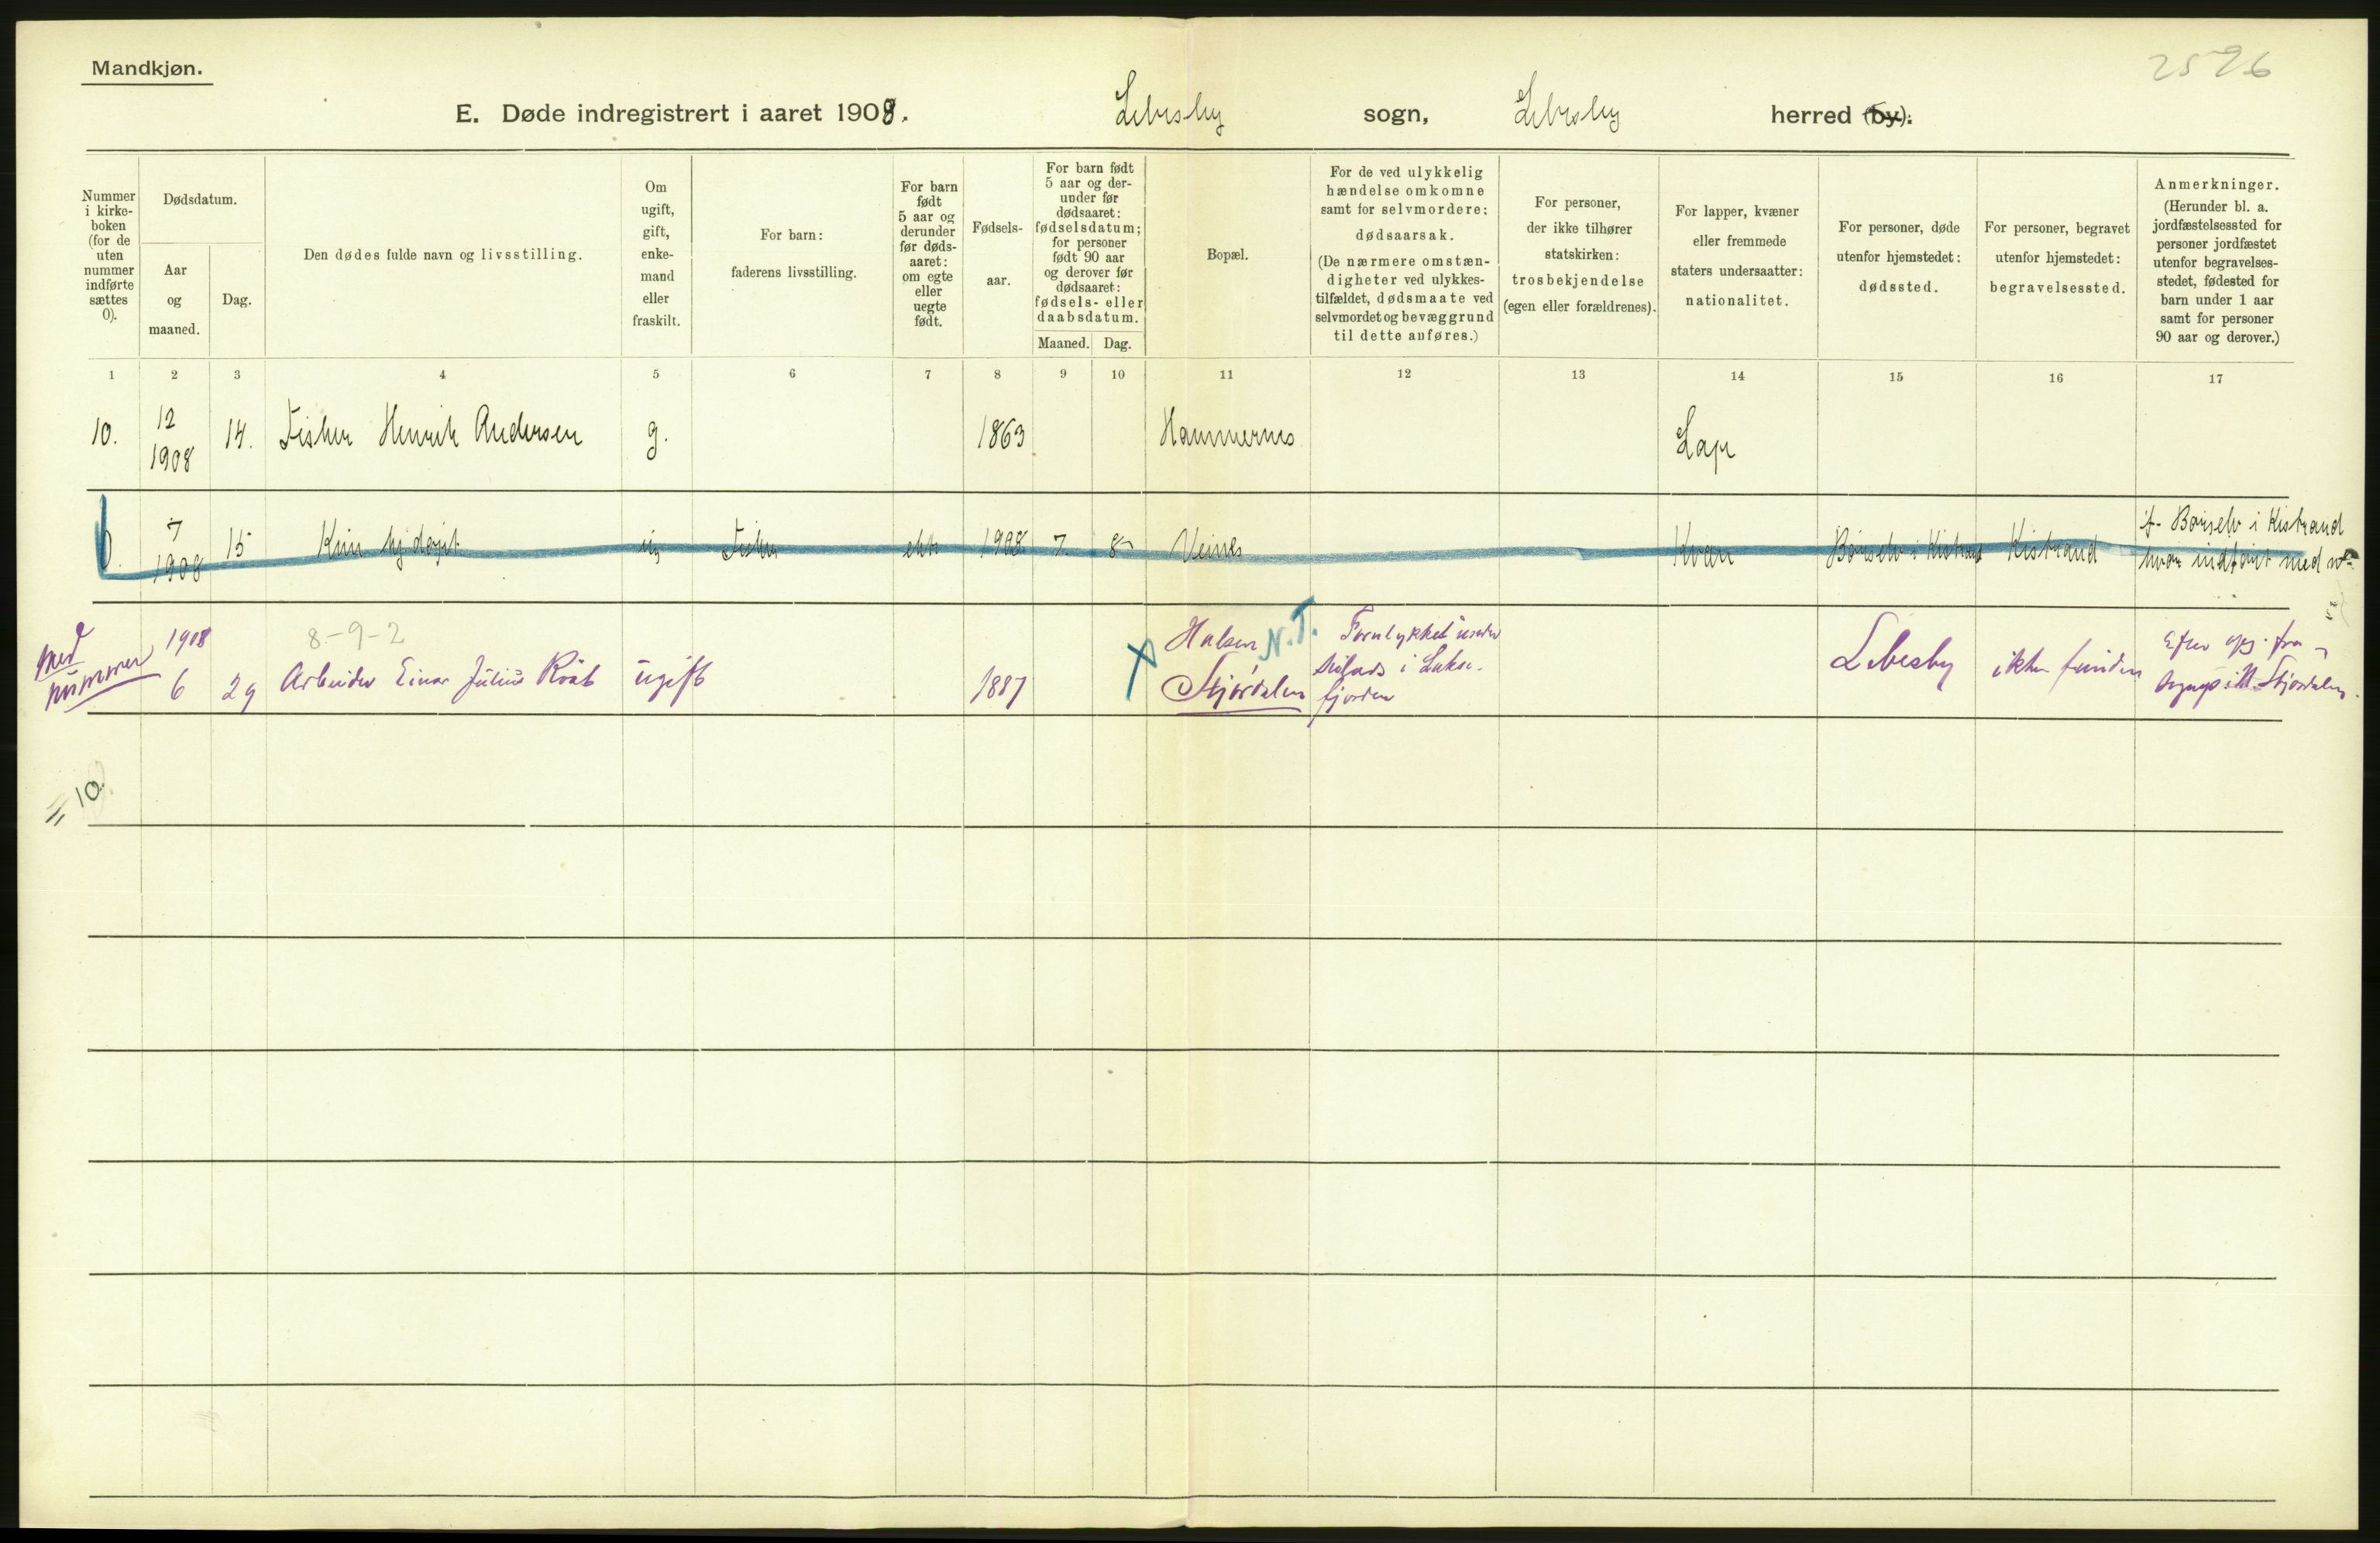 Mandkjøn.
2596
E. Døde indregistrert i aaret 1908. Lebesby sogn, Lebesby herred (by).
Nummer i kirke-boken (for de uten nummer indførte sættes 0).
Dødsdatum.
Aar og maaned.
Dag.
Den dødes fulde navn og livsstilling.
Om ugift, gift, enke-mand eller fraskilt.
For barn: faderens livsstilling.
For barn født 5 aar og derunder før døds-aaret: om egte eller uegte født.
Fødsels-aar.
For barn født 5 aar og der-under før dødsaaret: fødselsdatum; for personer født 90 aar og derover før dødsaaret: fødsels- eller daabsdatum.
Maaned. Dag.
Bopæl.
For de ved ulykkelig hændelse omkomne samt for selvmordere: dødsaarsak. (De nærmere omstæn-digheter ved ulykkes-tilfældet, dødsmaate ved selvmordet og bevæggrund til dette anføres.)
For personer, der ikke tilhører statskirken: trosbekjendelse (egen eller forældrenes).
For lapper, kvæner eller fremmede staters undersaatter: nationalitet.
For personer, døde utenfor hjemstedet: dødssted.
For personer, begravet utenfor hjemstedet: begravelsessted.
Anmerkninger. (Herunder bl. a. jordfæstelsessted for personer jordfæstet utenfor begravelses-stedet, fødested for barn under 1 aar samt for personer 90 aar og derover.)
1 2 3 4 5 6 7 8 9 10 11 12 13 14 15 16 17
10. 12 1908 14. Fisker Henrik Andersen g. 1863 Hammernes Lap
0. 7 1908 15 Kun hj.døpt ug Fisker ekte 1908 7. 8 Veines Kvæn Børselv i Kistrand Kistrand f. Børselv i Kistrand
hvor indført med nr
Med nummer 1908 6 29 8-9-2
Arbeider Einar Julius Kvål ugift 1887 Halsen N.T.
Stjørdalen Forulykket under
i Lakse-
fjorden Lebesby ikke funden Efter opg. fra
i N. Stjørdalen.
= 10.